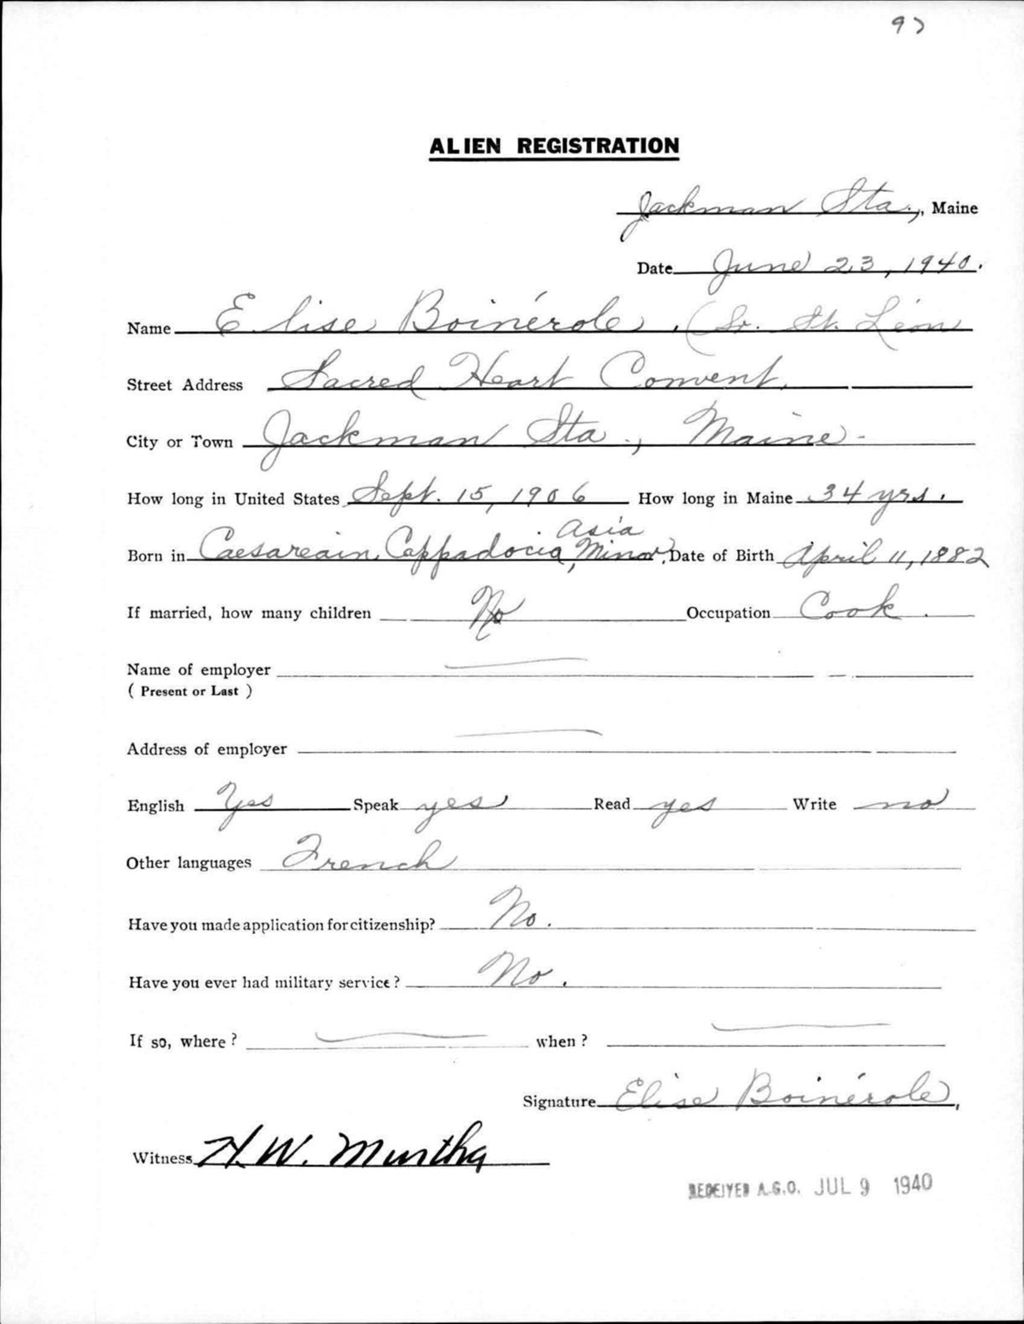 97
ALIEN REGISTRATION
Jackman Sta., Maine
Date June 23, 1940.
Name Elise Boinérole, (Sr. St. Léon
Street Address Sacred Heart Convent.
City or Town Jackman Sta., Maine-
How long in United States Sept. 15, 1906 How long in Maine 34 yrs.
Born in Caesareain, Cappadocia, Asia Minor, Date of Birth April 11, 1882
If married, how many children No Occupation Cook.
Name of employer
( Present or Last )
Address of employer
English Yes Speak yes Read yes Write no
Other languages French
Have you made application for citizenship? No.
Have you ever had military service? No.
If so, where? when?
Signature Elise Boinérole,
Witness H. W. Murtha
RECEIVED A.G.O. JUL 9 1940